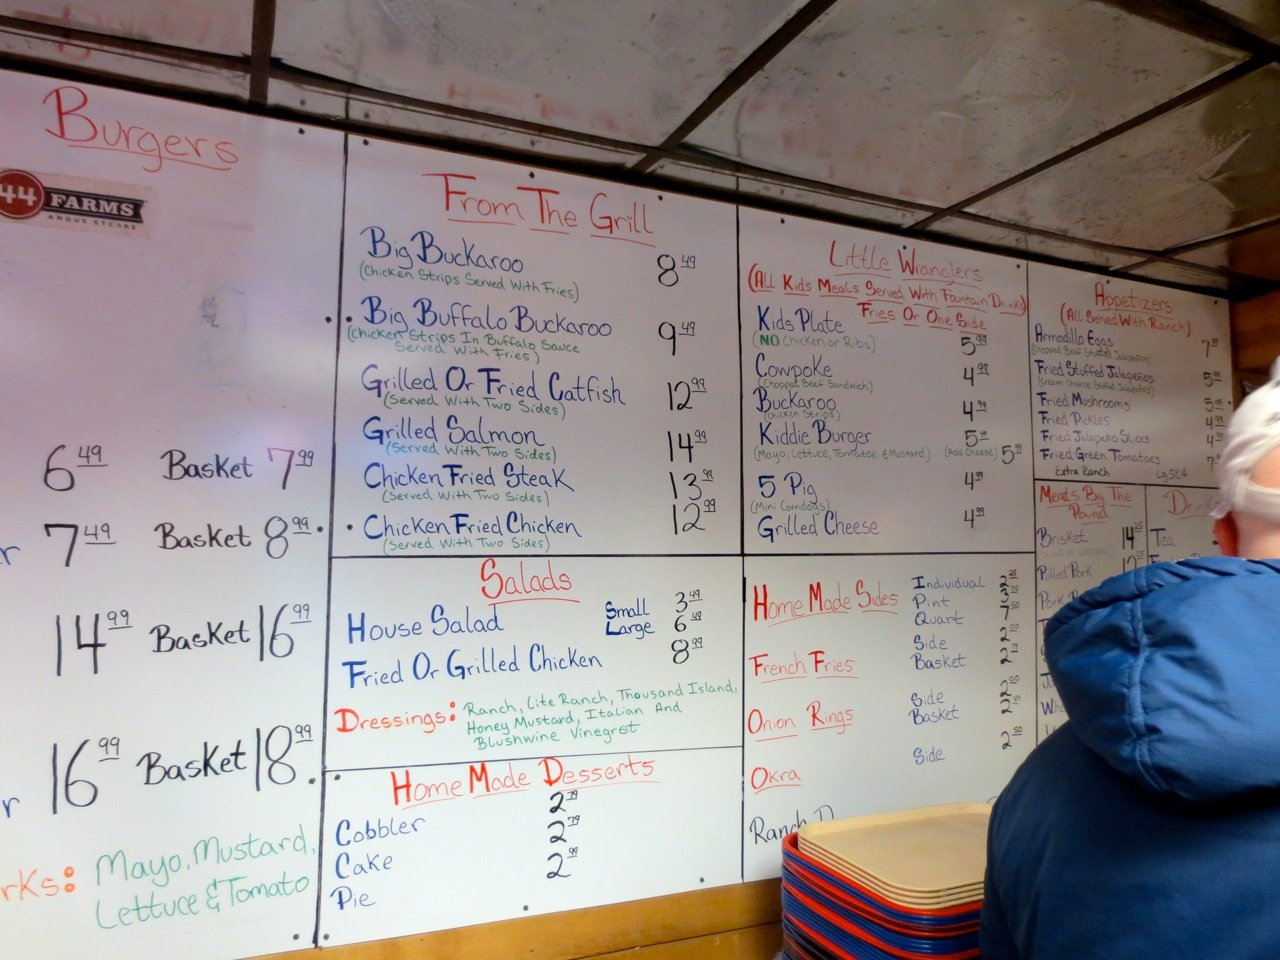 Burgers
44 FARMS
ANGUS STEAKS
6 49 Basket 7 99
7 49 Basket 8 99
14 99 Basket 16 99
16 99 Basket 18 99
rKs:
Mayo, Mustard,
Lettuce & Tomato
From The Grill
Big Buckaroo 8 49
(Chicken Strips Served With Fries)
Big Buffalo Buckaroo 9 49
(Chicken Strips In Buffalo Sauce
Served With Fries)
Grilled Or Fried Catfish 12 99
(Served With Two Sides)
Grilled Salmon 14 99
(Served With Two Sides)
Chicken Fried Steak 13 99
(Served With Two Sides)
Chicken Fried Chicken 12 99
(Served With Two Sides)
Salads
House Salad Small 3 49
Large 6 49
Fried Or Grilled Chicken 8 99
Dressings: Ranch, Lite Ranch, Thousand Island,
Honey Mustard, Italian And
Blushwine Vinegret
Home Made Desserts
Cobbler 2 79
Cake 2 79
Pie 2 99
Little Wranglers
(All Kids Meals Served With Fountain Drinks)
Fries Or One Side
Kids Plate 5 99
(NO Chicken or Ribs)
Cowpoke 4 99
(Chopped Beef Sandwich)
Buckaroo 4 99
(Chicken Strips)
Kiddie Burger 5 49
(Mayo, Lettuce, Tomatoe & Mustard) (Add Cheese) 5 99
5 Pig 4 99
(Mini Corndogs)
Grilled Cheese 4 99
Home Made Sides Individual
Pint
Quart
French Fries Side 2 00
Basket
Onion Rings Side 2 00
Basket
Okra Side 2 50
Ranch
Appetizers
(All Served With Ranch)
Armadillo Eggs
(Chopped Beef Stuffed Jalapeños)
Fried Stuffed Jalapeños
(Cream Cheese Stuffed Jalapeños)
Fried Mushrooms
Fried Pickles
Fried Jalapeño Slices
Fried Green Tomatoes
Extra Ranch Lg 50¢
Meats By The
Pound
Brisket
Pulled Pork
Pork
Drin
Tea